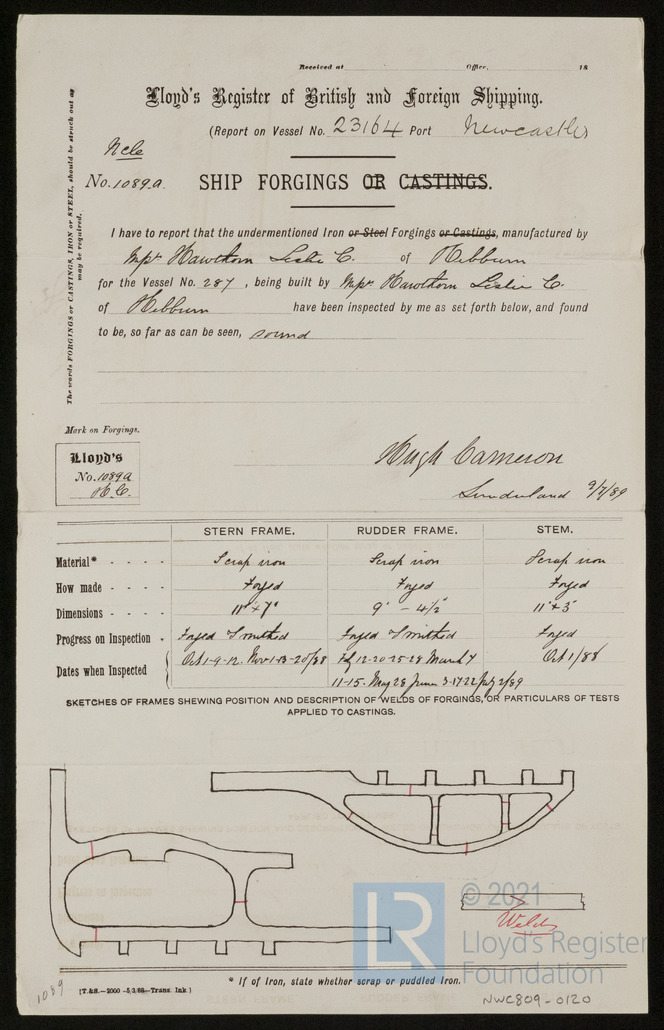 Received at Office, 18
Lloyd's Register of British and Foreign Shipping.
(Report on Vessel No. 23164 Port Newcastle)
Ncle
No. 1089a. SHIP FORGINGS OR CASTINGS.
The words FORGINGS or CASTINGS, IRON or STEEL, should be struck out as
may be required.
I have to report that the undermentioned Iron or Steel Forgings or Castings, manufactured by
Hawthorn Leslie C. of Hebburn
for the Vessel No. 287, being built by Hawthorn Leslie C.
of Hebburn have been inspected by me as set forth below, and found
to be, so far as can be seen, sound
Mark on Forgings.
Lloyd's
No. 1089a
H.C.
Hugh Cameron
Sunderland 9/7/89
STERN FRAME. RUDDER FRAME. STEM.
Material* Scrap iron Scrap iron Scrap iron
How made Forged Forged Forged
Dimensions 11" x 7" 9" - 4½" 11" x 3"
Progress on Inspection Forged & Smithed Forged & Smithed Forged
Dates when Inspected Oct 1-9-12. Nov 1-13-20/88 Feb 12-20-25-28 March 7 Oct 1/88
11-15. May 28 June 3-17-22 July 2/89
SKETCHES OF FRAMES SHEWING POSITION AND DESCRIPTION OF WELDS OF FORGINGS, OR PARTICULARS OF TESTS
APPLIED TO CASTINGS.
Welds
LR
© 2021
Lloyd's Register
Foundation
* If of Iron, state whether scrap or puddled Iron.
[T.&S.—2000—5/3/88—Trans. Ink.]
1089
NWC809-0120